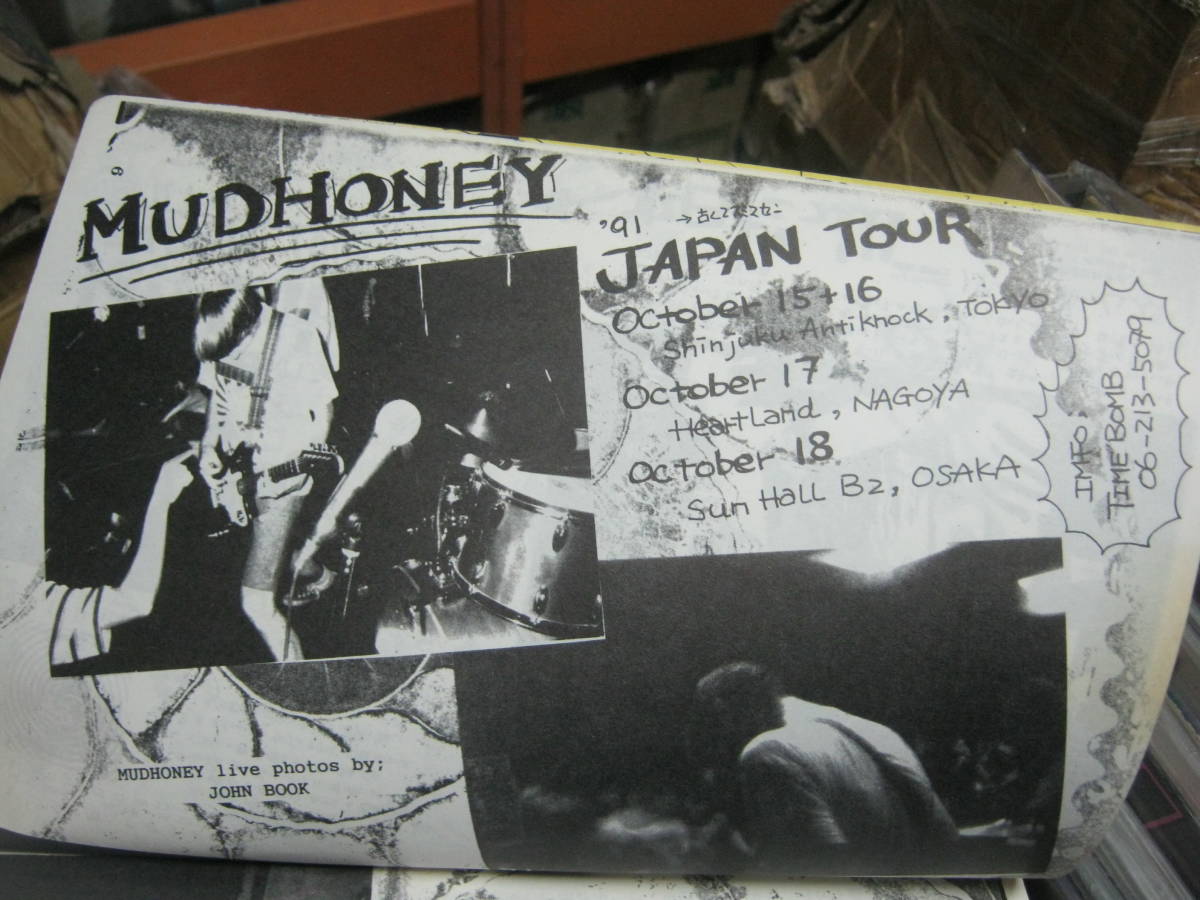 6
MUDHONEY
'91 →古くてスミマセン
JAPAN TOUR
October 15+16
Shinjuku Antiknock, TOKYO
October 17
HeartLand, NAGOYA
October 18
Sun Hall B2, OSAKA
IMFO;
TIME BOMB
06-213-5079
MUDHONEY live photos by;
JOHN BOOK